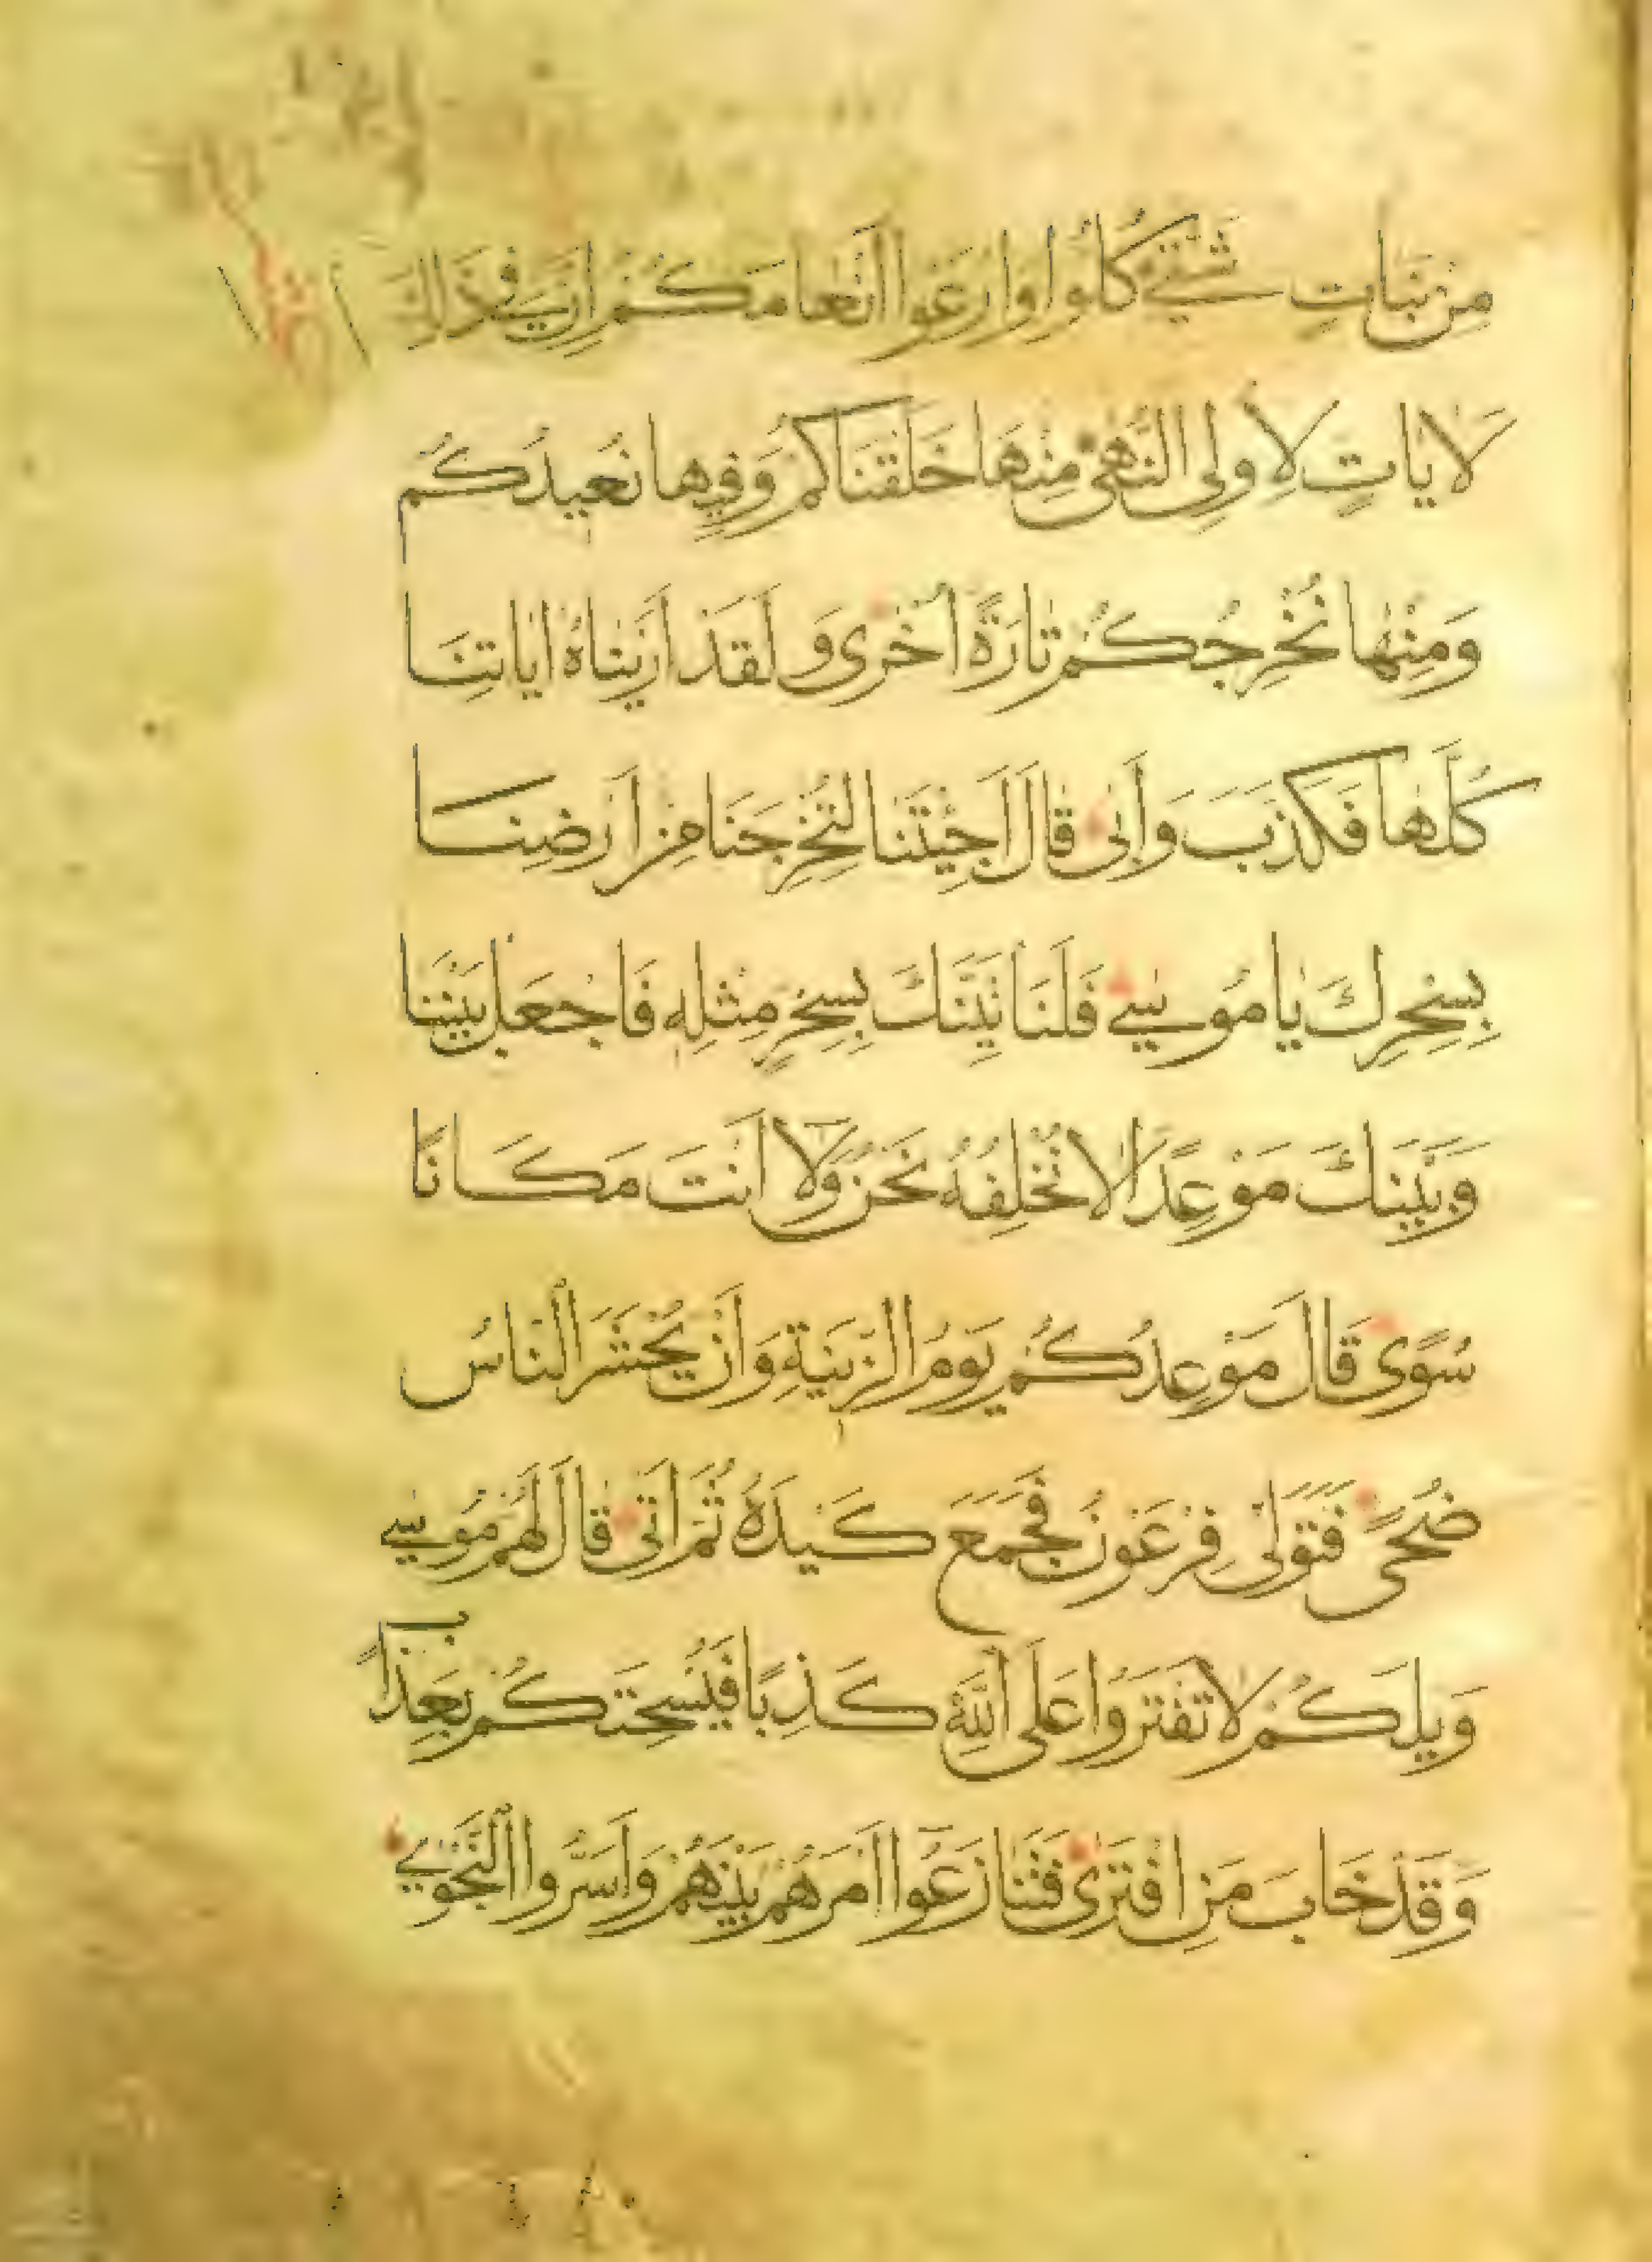 مِنْ نَبَاتٍ شَتّٰى كُلُوا وَارْعَوْا اَنْعَامَكُمْ اِنَّ فِى ذٰلِكَ
لَاٰيَاتٍ لِاُولِى النُّهٰى مِنْهَا خَلَقْنَاكُمْ وَفِيهَا نُعِيدُكُمْ
وَمِنْهَا نُخْرِجُكُمْ تَارَةً اُخْرٰى وَلَقَدْ اَرَيْنَاهُ اٰيَاتِنَا
كُلَّهَا فَكَذَّبَ وَاَبٰى قَالَ اَجِئْتَنَا لِتُخْرِجَنَا مِنْ اَرْضِنَا
بِسِحْرِكَ يَا مُوسٰى فَلَنَاْتِيَنَّكَ بِسِحْرٍ مِثْلِهِ فَاجْعَلْ بَيْنَنَا
وَبَيْنَكَ مَوْعِدًا لَا نُخْلِفُهُ نَحْنُ وَلَا اَنْتَ مَكَانًا
سُوًى قَالَ مَوْعِدُكُمْ يَوْمُ الزِّينَةِ وَاَنْ يُحْشَرَ النَّاسُ
ضُحًى فَتَوَلّٰى فِرْعَوْنُ فَجَمَعَ كَيْدَهُ ثُمَّ اَتٰى قَالَ لَهُمْ مُوسٰى
وَيْلَكُمْ لَا تَفْتَرُوا عَلَى اللّٰهِ كَذِبًا فَيُسْحِتَكُمْ بِعَذَابٍ
وَقَدْ خَابَ مَنِ افْتَرٰى فَتَنَازَعُوا اَمْرَهُمْ بَيْنَهُمْ وَاَسَرُّوا النَّجْوٰى